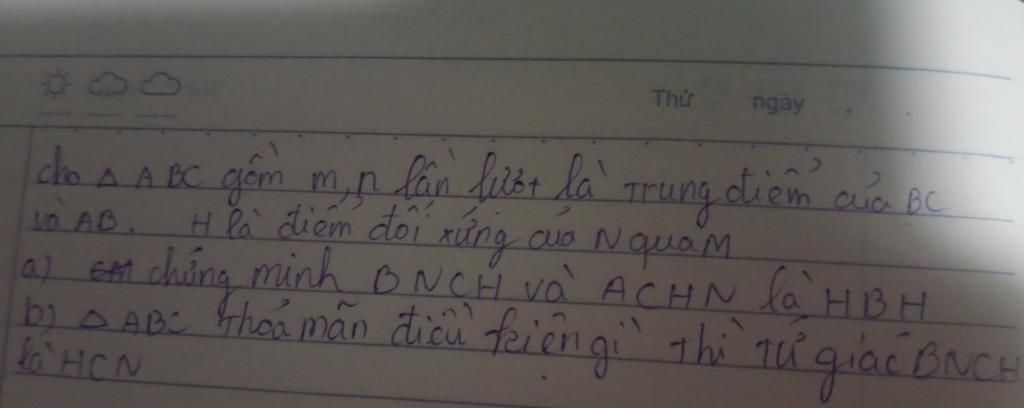 Thứ ngày
cho △ ABC gồm m,n lần lượt là Trung điểm của BC
và AB. H là điểm đối xứng của N qua M
a) chứng minh BNCH và ACHN là HBH
b) △ ABC thoả mãn điều kiện gì thì Tứ giác BNCH
là HCN